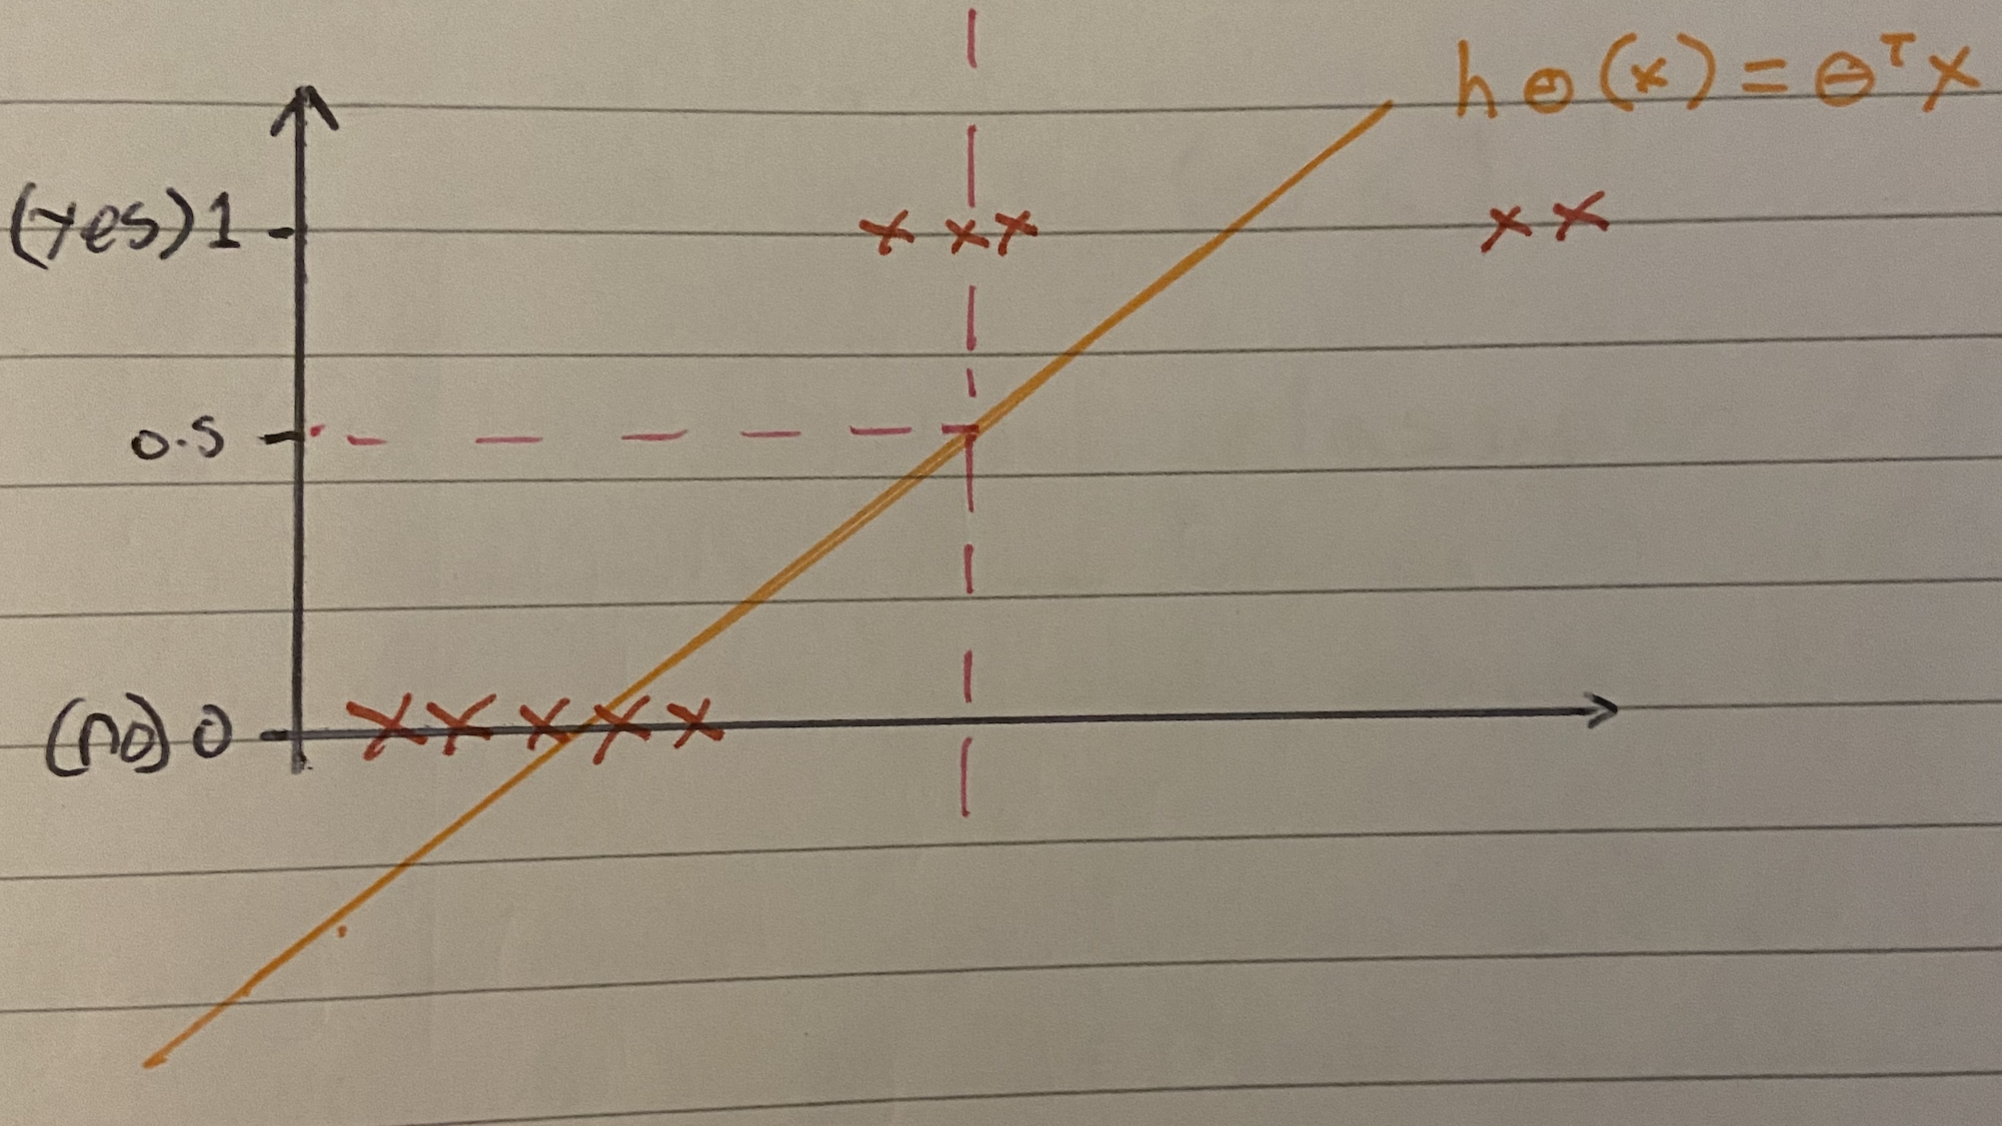 hθ(x) = θᵀx
(yes) 1
0.5
(no) 0